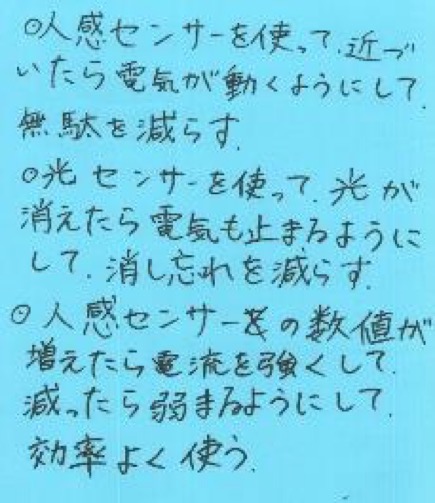 ○人感センサーを使って、近づ
いたら電気が動くようにして、
無駄を減らす。
○光センサーを使って、光が
消えたら電気も止まるように
して、消し忘れを減らす。
○人感センサーの数値が
増えたら電流を強くして、
減ったら弱まるようにして、
効率よく使う。